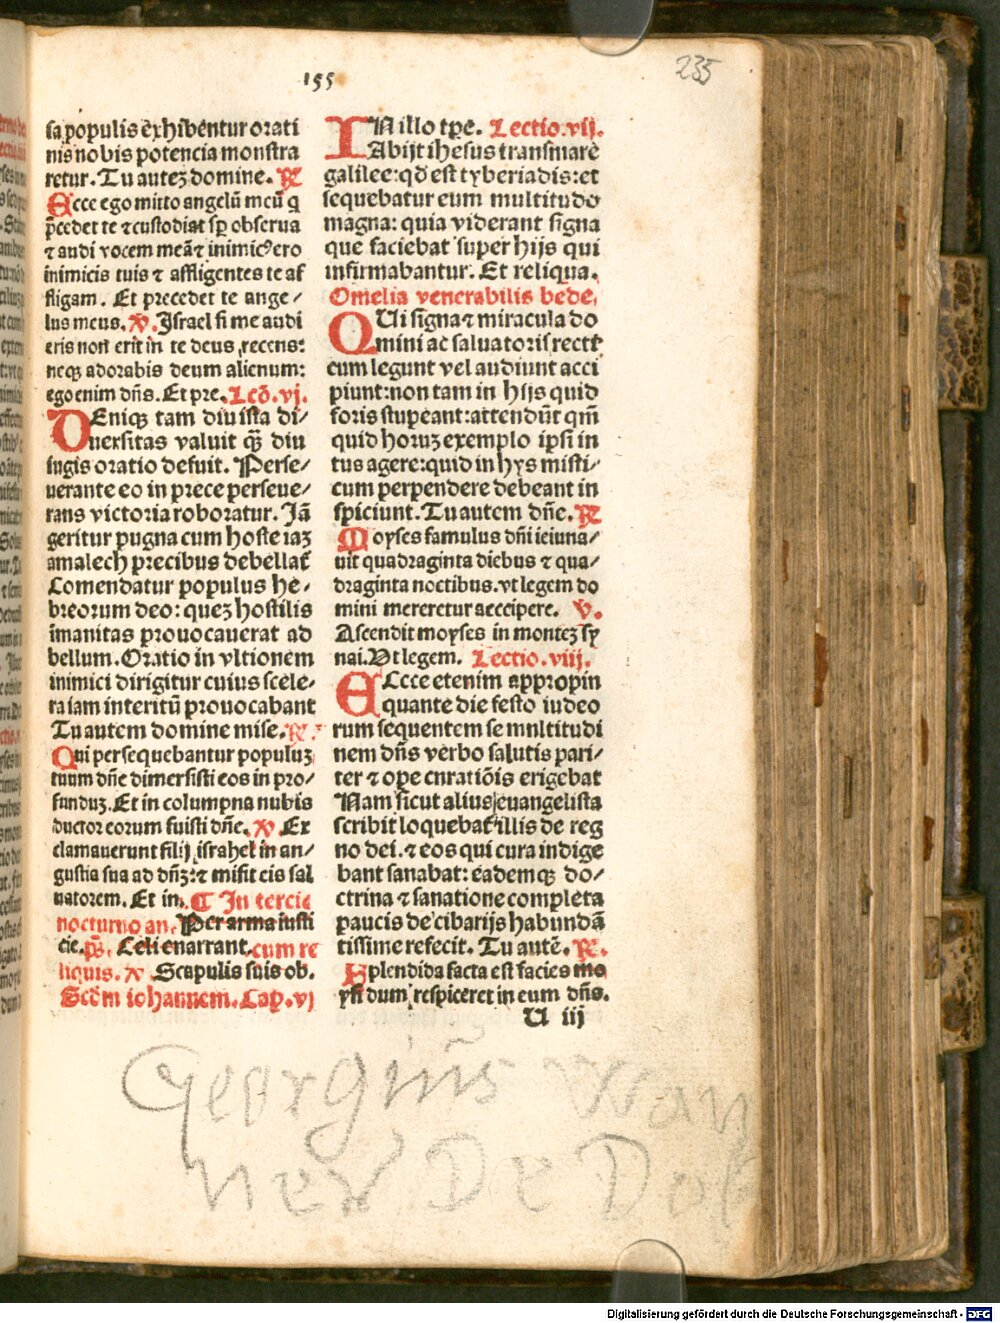 155
235
sa populis exhibentur orati
nis nobis potencia monstra
retur. Tu autez domine. ℟
Ecce ego mitto angelū meū q
p̄cedet te ⁊ custodiat sp̄ obserua
⁊ audi vocem meā ⁊ inimicꝰ ero
inimicis tuis ⁊ affligentes te af
fligam. Et precedet te ange⸗
lus meus. ℣. Israel si me audi
eris non erit in te deus recens:
neqꝫ adorabis deum alienum:
ego enim dn̄s. Et pre. Lcō. vj.
DEniqꝫ tam diu ista di⸗
uersitas valuit qꝫ̄ diu
iugis oratio defuit. Perse⸗
uerante eo in prece perseue⸗
rans victoria roboratur. Iā
geritur pugna cum hoste iaꝫ
amalech precibus debellat̄
Comendatur populus he⸗
breorum deo: queꝫ hostilis
imanitas prouocauerat ad
bellum. Oratio in vltionem
inimici dirigitur cuius scele⸗
ra iam interitū prouocabant
Tu autem domine mise. ℟.
Qui persequebantur populuꝫ
tuum dn̄e dimersisti eos in pro⸗
funduꝫ. Et in columpna nubis
ductor eorum fuisti dn̄e. ℣ Ex
clamauerunt filij israhel in an⸗
gustia sua ad dn̄ꝫ: ⁊ misit eis sal
uatorem. Et in. ¶ In tercio
nocturno an. Per arma iusti
cie. p̄s. Celi enarrant. cum re
liquis. ℣ Scapulis suis ob.
Scḋm iohannem. Cap. vj
IN illo tp̄e. Lectio. vij.
Abijt ihesus trans mare
galilee: qḋ est tyberiadis: et
sequebatur eum multitudo
magna: quia viderant signa
que faciebat super hijs qui
infirmabantur. Et reliqua.
Omelia venerabilis bede.
QUi signa ⁊ miracula do
mini ac saluatoris recte
cum legunt vel audiunt acci
piunt: non tam in hijs quid
foris stupeant: attendūt qm̄
quid horuꝫ exemplo ipsi in
tus agere: quid in hys misti⸗
cum perpendere debeant in
spiciunt. Tu autem dn̄e. ℟
Moyses famulus dn̄i ieiuna⸗
uit quadraginta diebus ⁊ qua⸗
draginta noctibus. vt legem do
mini mereretur accipere. ℣.
Ascendit moyses in monteꝫ sy
nai. Vt legem. Lectio. viij.
ECce etenim appropin
quante die festo iudeo
rum sequentem se mnltitudi
nem dn̄s verbo salutis pari⸗
ter ⁊ ope cnratiōis erigebat
Nam sicut alius euangelista
scribit loquebat̄ illis de reg
no dei. ⁊ eos qui cura indige
bant sanabat: eademqꝫ do⸗
ctrina ⁊ sanatione completa
paucis de cibarijs habundā
tissime refecit. Tu autē. ℟.
Splendida facta est facies mo
ysi dum respiceret in eum dn̄s.
U iij
Georgiūs Wan
ner De Dob
Digitalisierung gefördert durch die Deutsche Forschungsgemeinschaft - DFG